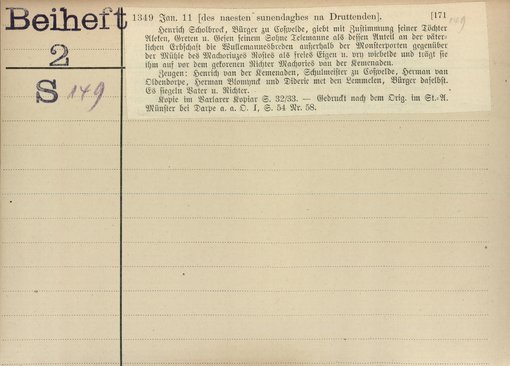 Beiheft
2
S 149
1349 Jan. 11 [des naesten sunendaghes na Druttenden]. [171
149
Henrich Scholbrod, Bürger zu Coßvelde, giebt mit Zustimmung seiner Töchter
Aleken, Greten u. Gesen seinem Sohne Telemanne als dessen Anteil an der väter-
lichen Erbschaft die Wullemannesbreden außerhalb der Monsterporten gegenüber
der Mühle des Machoriuzes Rostes als freies Eigen u. vry wicbelde und trägt sie
ihm auf vor dem gekorenen Richter Machories van der Kemenaden.
Zeugen: Henrich van der Kemenaden, Schulmeister zu Coßvelde, Herman van
Oldendorpe, Herman Blomynck und Dideric met den Lemmelen, Bürger daselbst.
Es siegeln Vater u. Richter.
Kopie im Varlarer Kopiar S. 32/33. — Gedruckt nach dem Orig. im St.-A.
Münster bei Darpe a. a. O. I, S. 54 Nr. 58.